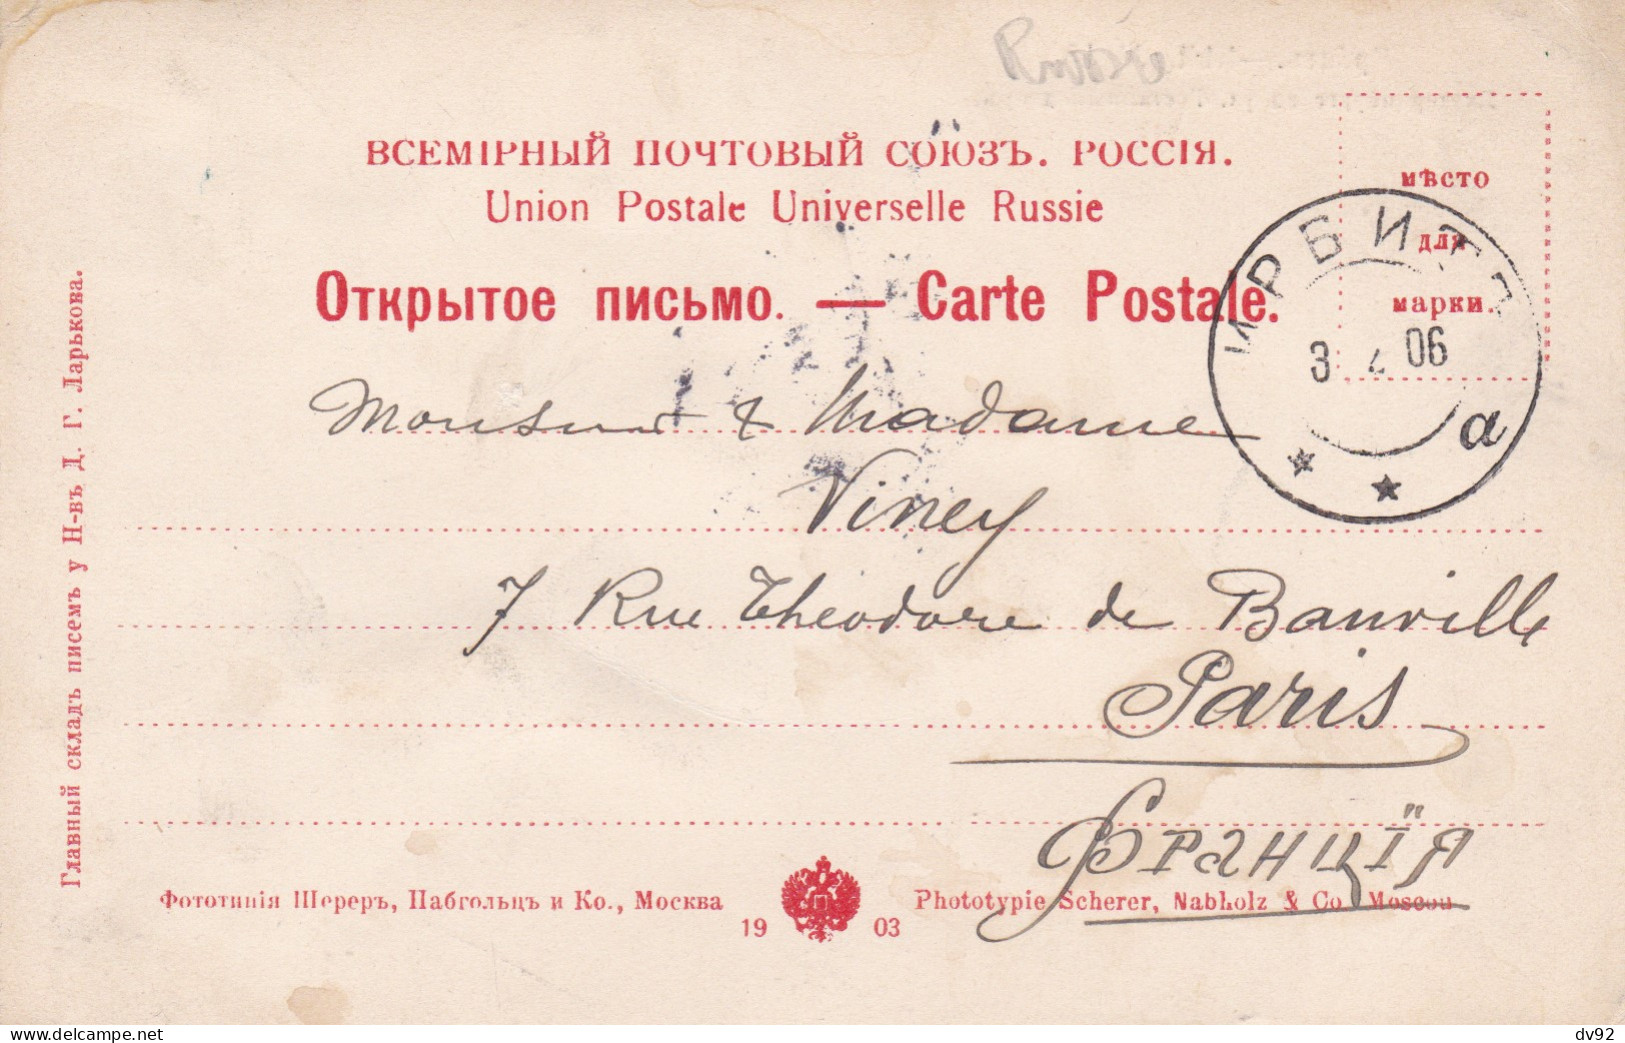 Russie
ВСЕМІРНЫЙ ПОЧТОВЫЙ СОЮЗЪ. РОССІЯ.
Union Postale Universelle Russie
Открытое письмо. — Carte Postale.
мѣсто
для
марки.
ИРБИТЬ
3 06
а
Monsieur & Madame
Viney
7 Rue Théodore de Banville
Paris
Франція
Главный складъ писемъ у Н-въ Д. Г. Ларькова.
Фототипія Шереръ, Набгольцъ и Ко., Москва
19 03
Phototypie Scherer, Nabholz & Co Moscou
dv92